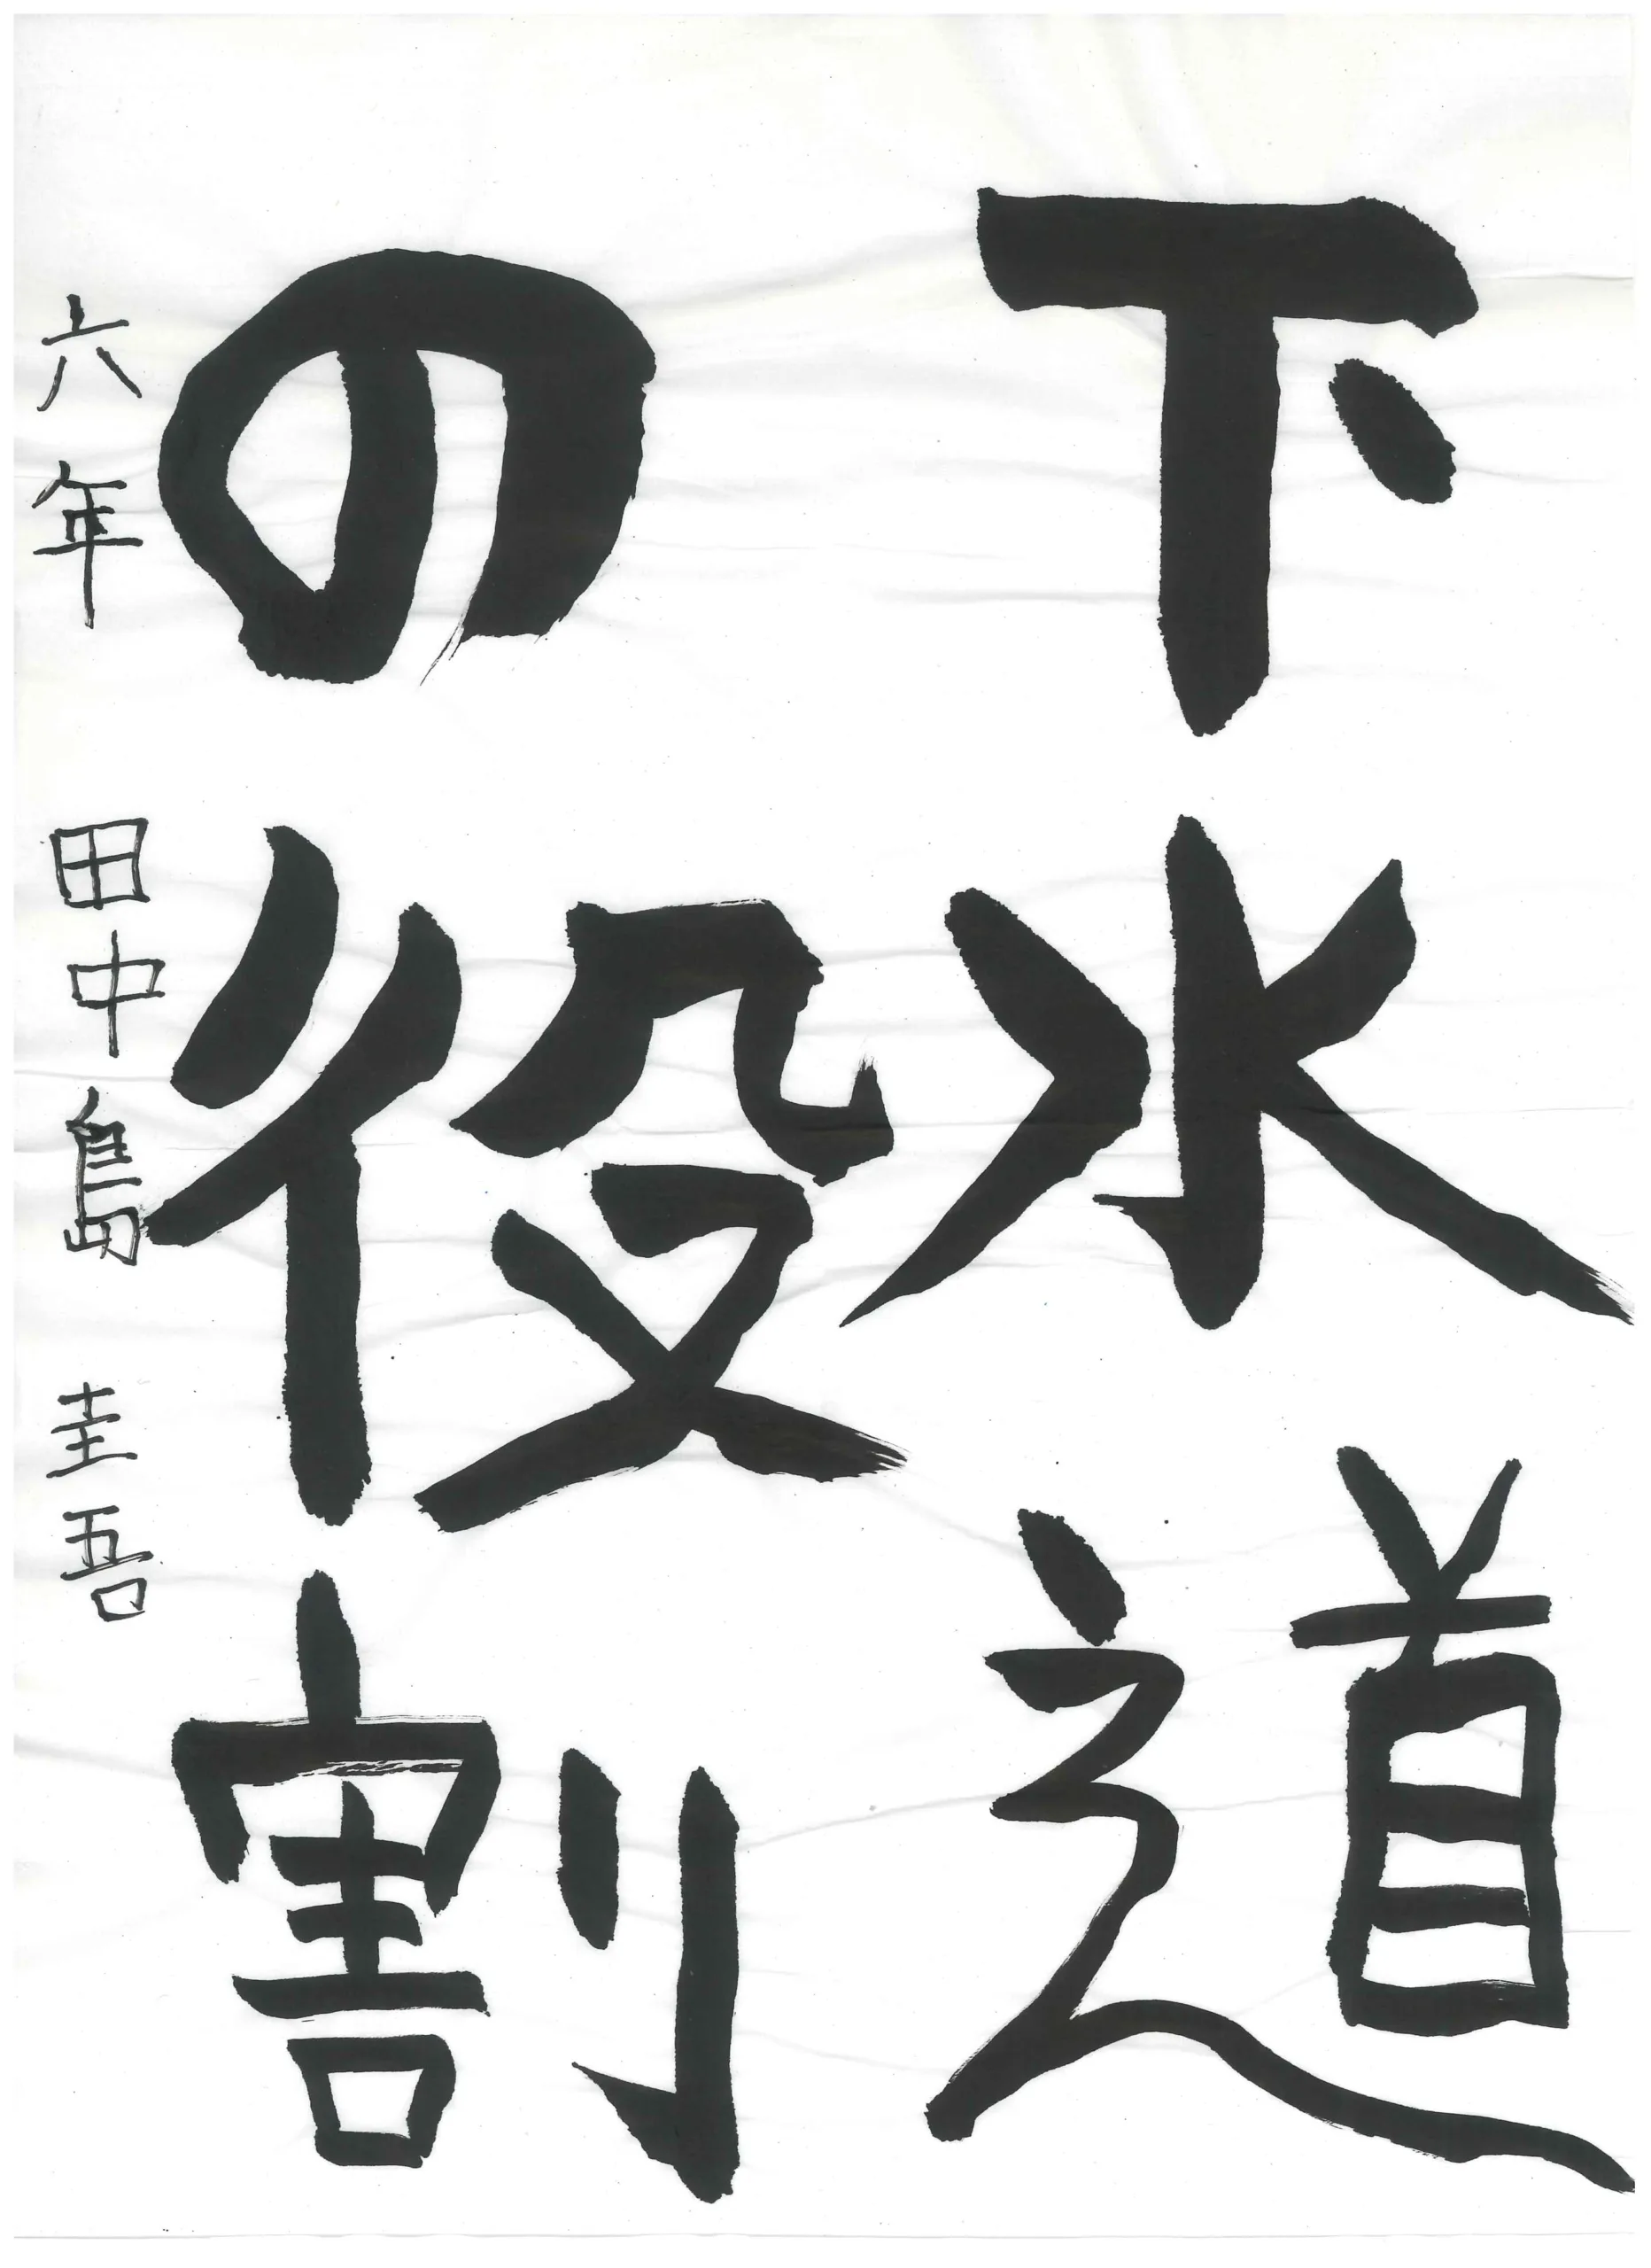 下水道
の役割
六年 田中島 圭吾